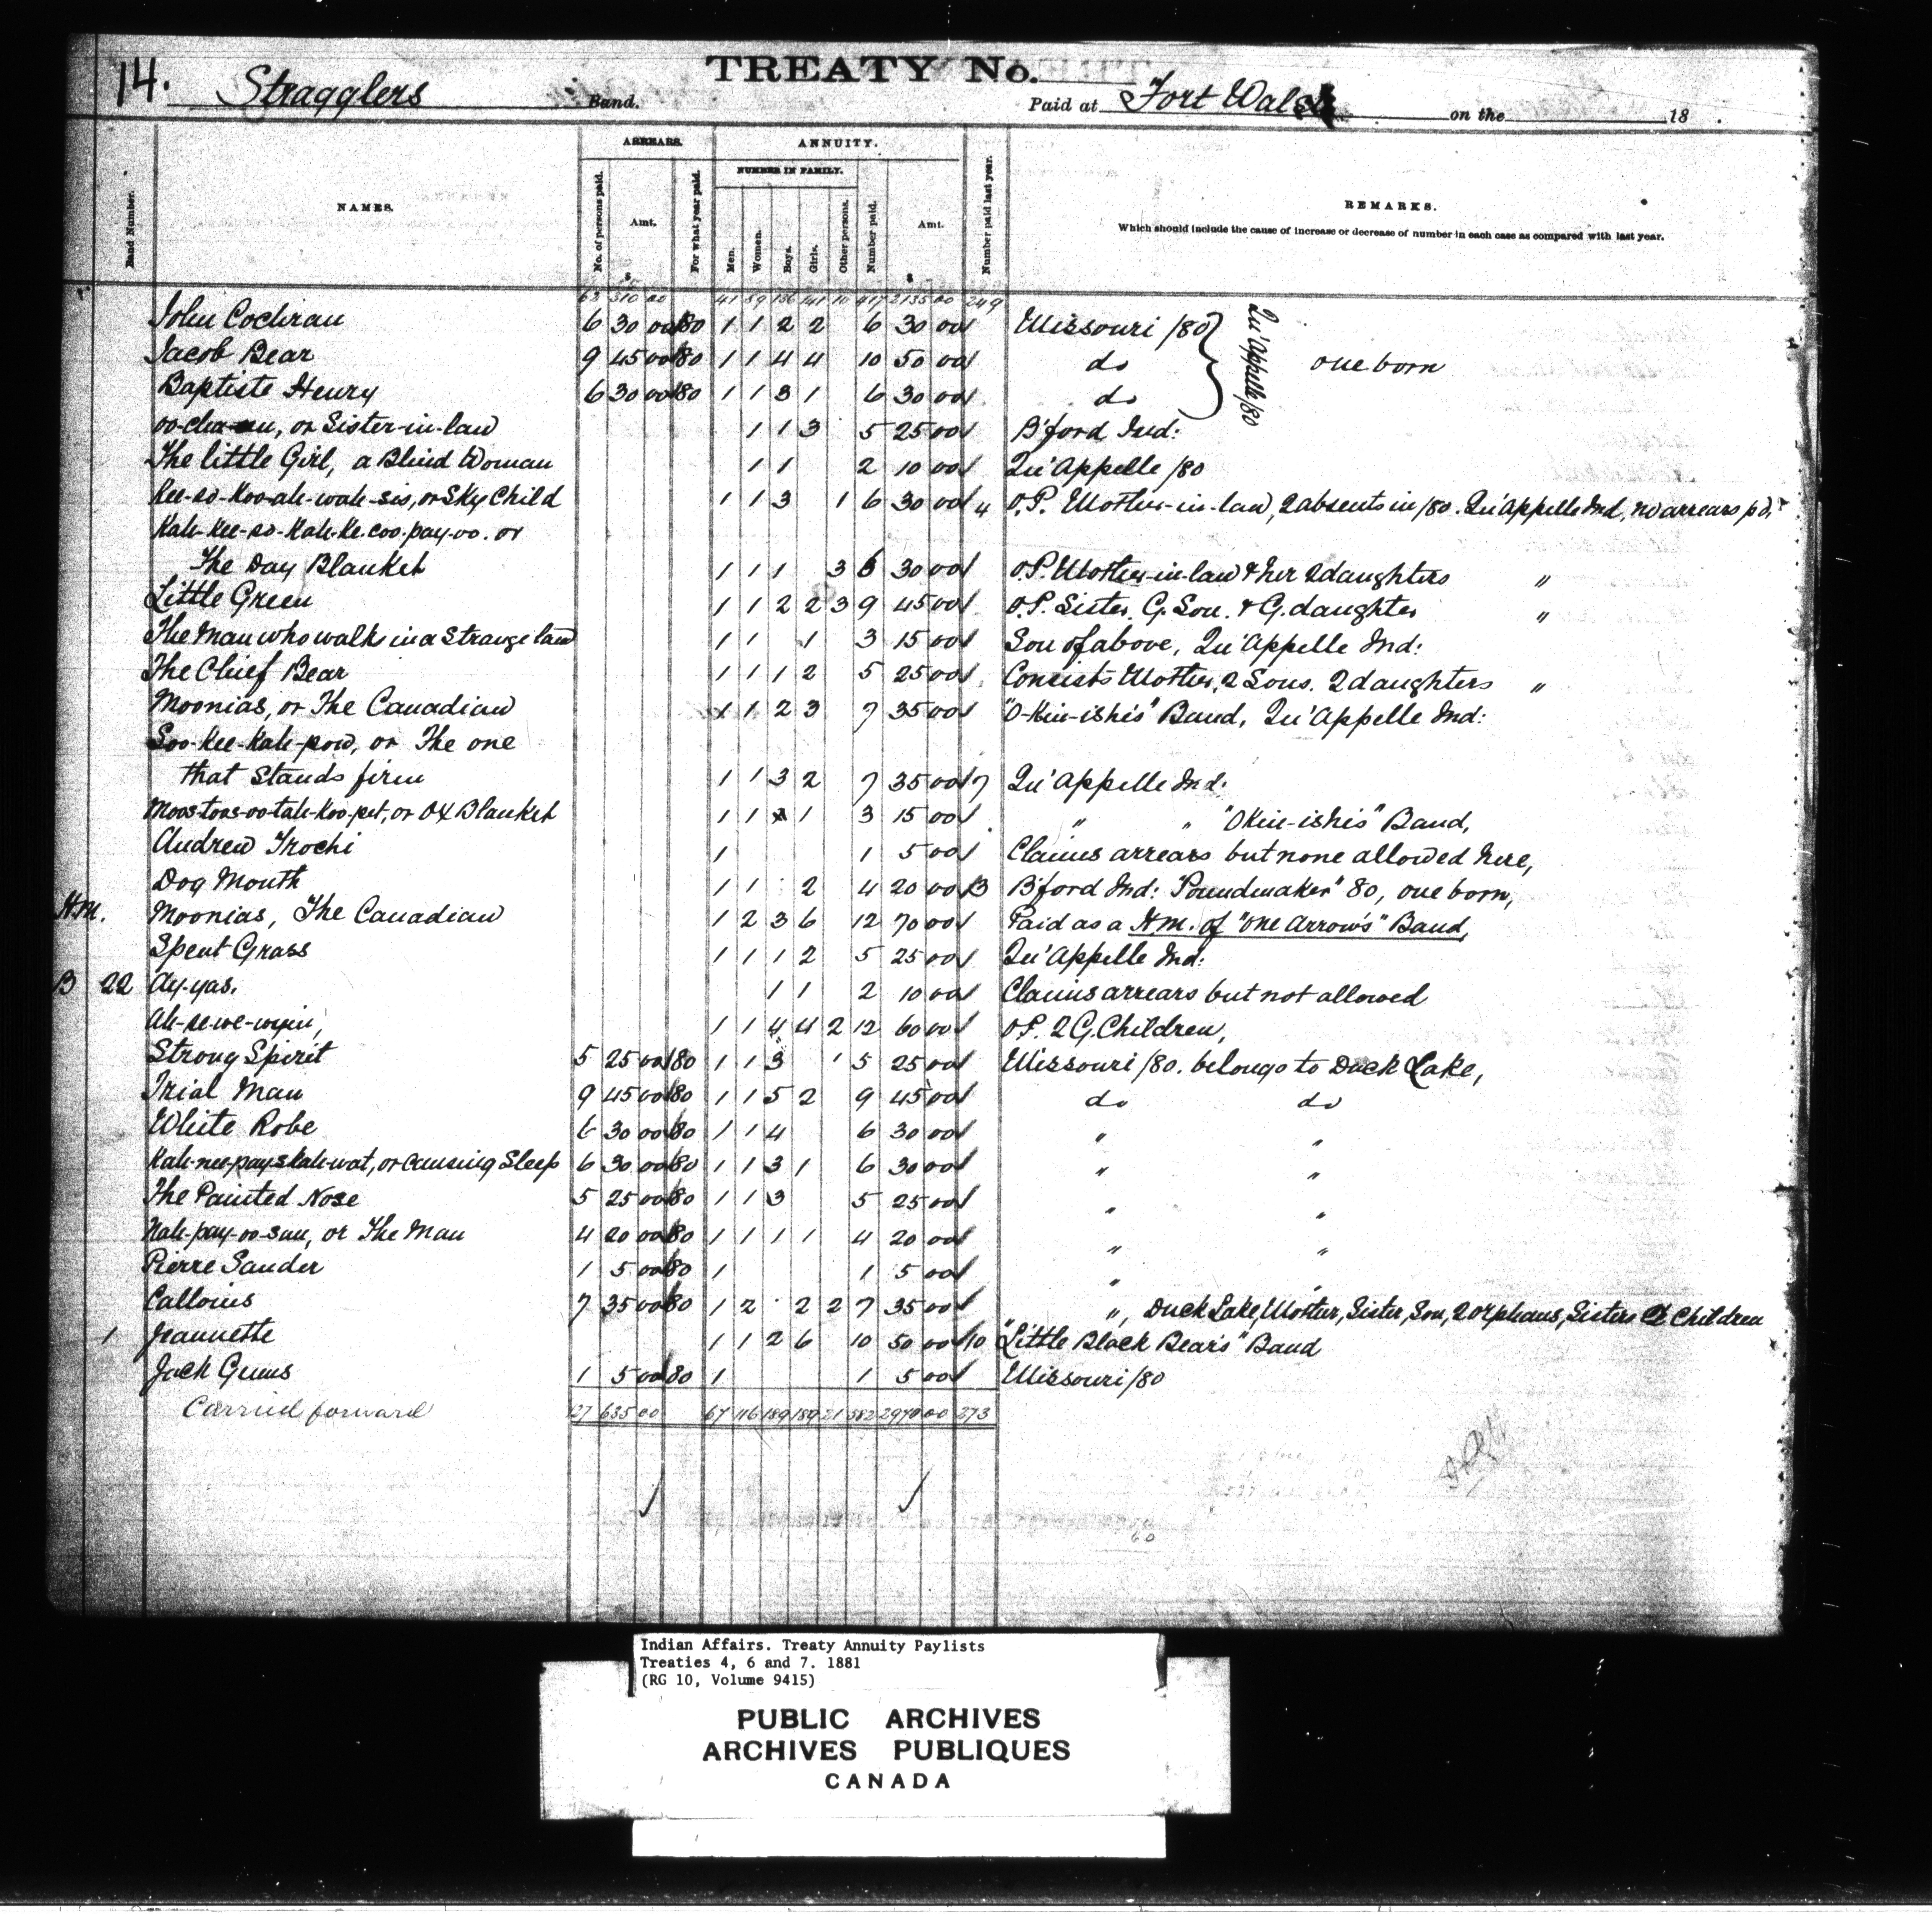 14. Stragglers Band. TREATY No. Paid at Fort Walsh on the 18
ARREARS. ANNUITY.
NUMBER IN FAMILY.
Band Number. NAMES. No. of persons paid. Amt. For what year paid. Men. Women. Boys. Girls. Other persons. Number paid. Amt. Number paid last year. REMARKS.
Which should include the cause of increase or decrease of number in each case as compared with last year.
$ $
62 310 00 41 89 136 141 10 417 2135 00 249
John Cochran 6 30 00 /80 1 1 2 2 6 30 00 Missouri /80 Qu'Appelle/80
Jacob Bear 9 45 00 /80 1 1 4 4 10 50 00 do one born
Baptiste Henry 6 30 00 /80 1 1 3 1 6 30 00 do
or Sister-in-law 1 1 3 5 25 00 B'ford Ind:
The little Girl, a Blind Woman 1 1 2 10 00 Qu'Appelle /80
Kee-so-Koo-ah-wah-sis, or Sky Child 1 1 3 1 6 30 00 4 O.P. Mother-in-law, 2 absents in /80. Qu'Appelle Ind, no arrears pd.
Kah-Kee-so-Kah-Ke-coo-pay-oo. or
The Day Blanket 1 1 1 3 6 30 00 O.P. Mother-in-law & her 2 daughters "
Little Green 1 1 2 2 3 9 45 00 O.P. Sister, G. Son. & G. daughter "
The Man who walks in a Strange land 1 1 1 3 15 00 Son of above, Qu'Appelle Ind:
The Chief Bear 1 1 1 2 5 25 00 Consists Mother, 2 Sons. 2 daughters "
Moonias, or The Canadian 1 1 2 3 7 35 00 "O-Kin-ishi's" Band, Qu'Appelle Ind:
Soo-Kee-Kah-pow, or The one
that Stands firm 1 1 3 2 7 35 00 7 Qu'Appelle Ind:
Moos-toos-oo-tah-Koo-pet, or Ox Blanket 1 1 1 3 15 00 " " "OKin-ishis" Band,
Andrew Trochi 1 1 5 00 Claims arrears but none allowed here,
Dog Mouth 1 1 2 4 20 00 3 B'ford Ind: "Poundmaker" 80, one born,
H.M. Moonias, The Canadian 1 2 3 6 12 70 00 Paid as a H.M. of "One Arrow's" Band,
Spent Grass 1 1 1 2 5 25 00 Qu'Appelle Ind:
B 22 Ay-yas. 1 1 2 10 00 Claims arrears but not allowed
Ah-se-we-wyin, 1 1 4 4 2 12 60 00 O.P. 2 G. Children,
Strong Spirit 5 25 00 /80 1 1 3 5 25 00 Missouri /80. belongs to Duck Lake,
Trial Man 9 45 00 /80 1 1 5 2 9 45 00 do do
White Robe 6 30 00 /80 1 1 4 6 30 00 " "
Kah-nee-pay-skah-wat, or Causing Sleep 6 30 00 /80 1 1 3 1 6 30 00 " "
The Painted Nose 5 25 00 /80 1 1 3 5 25 00 " "
Nah-pay-oo-san, or The Man 4 20 00 /80 1 1 1 1 4 20 00 " "
Pierre Sander 1 5 00 /80 1 1 5 00 " "
Callouis 7 35 00 /80 1 2 2 2 7 35 00 ", Duck Lake, Mother, Sister, Son, 2 orphans, Sisters Children
1 Jeannette 1 1 2 6 10 50 00 10 "Little Black Bear's" Band
Jack Gunns 1 5 00 /80 1 1 5 00 Missouri /80
Carried forward 127 635 00 67 116 189 189 21 582 2970 00 273
60
Indian Affairs. Treaty Annuity Paylists
Treaties 4, 6 and 7. 1881
(RG 10, Volume 9415)
PUBLIC ARCHIVES
ARCHIVES PUBLIQUES
CANADA